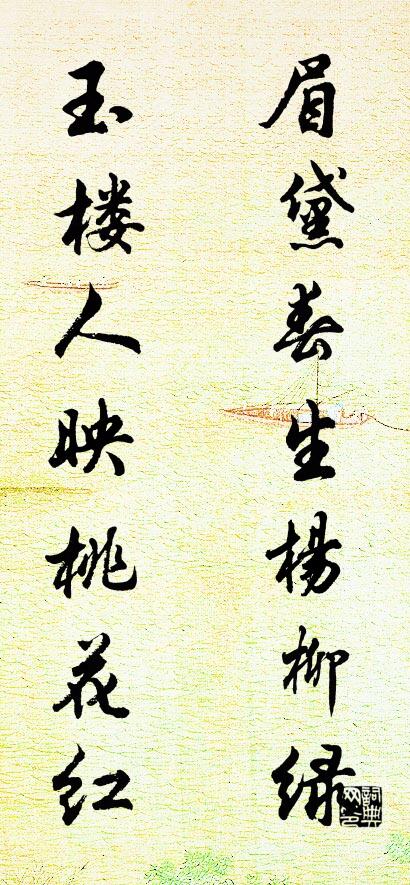 眉黛春生楊柳绿
玉楼人映桃花红
詞典网